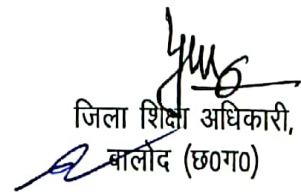 जिला शिक्षा अधिकारी,
बालोद (छ0ग0)